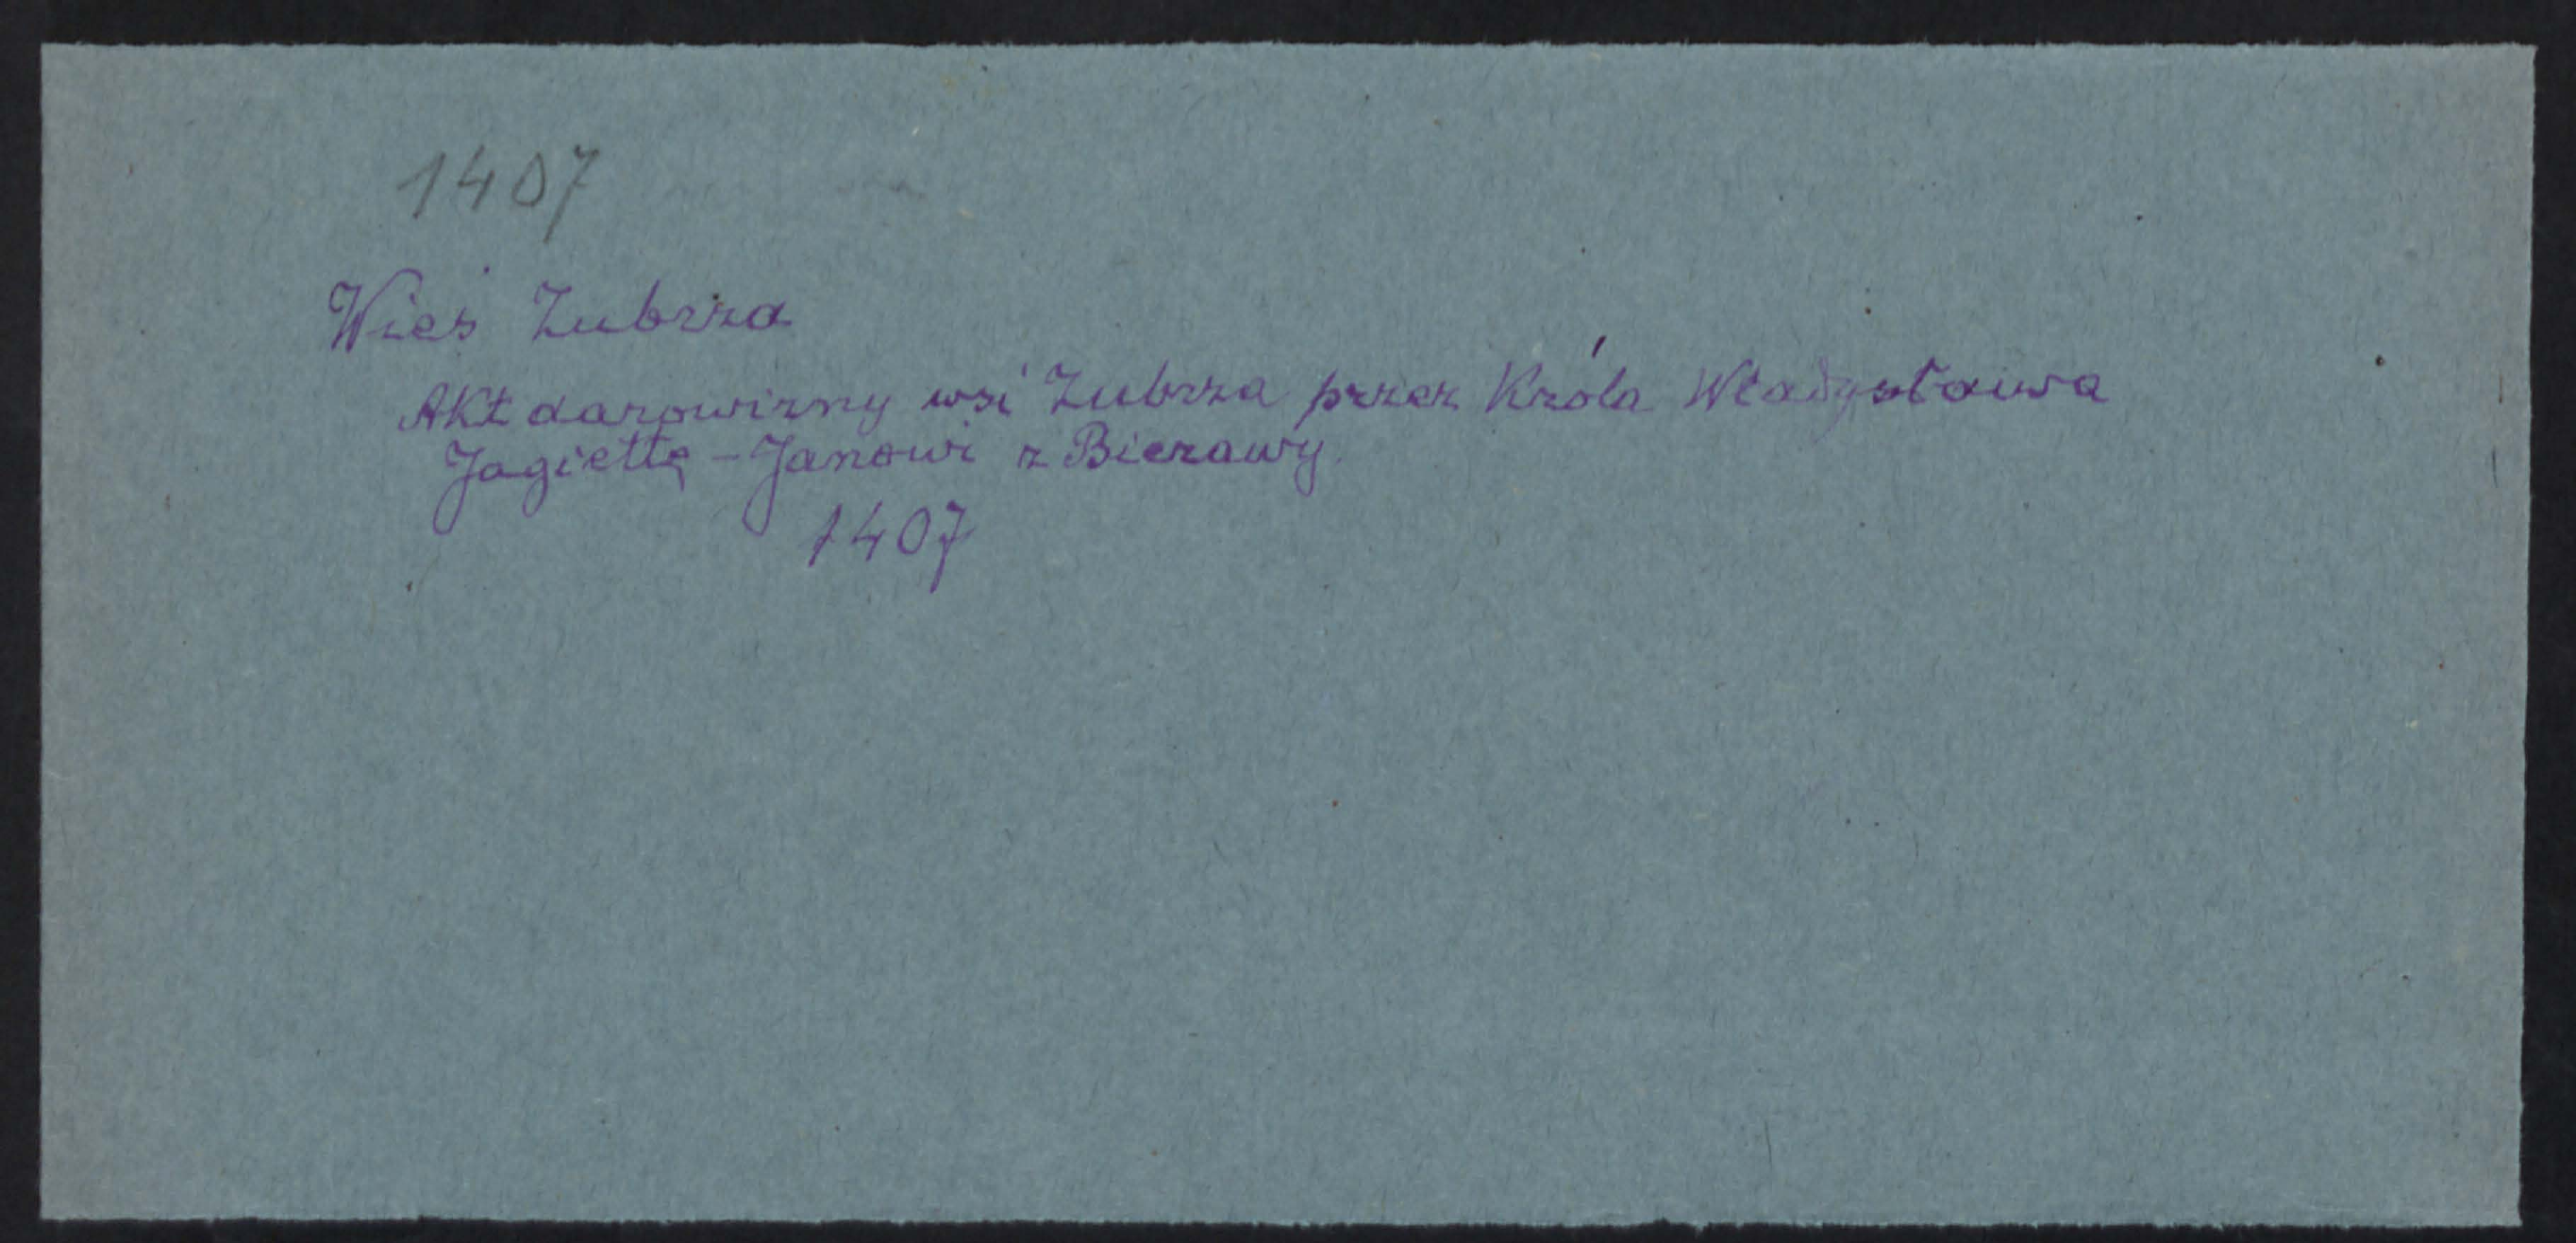 1407
Wieś Zubrza
Akt darowizny wsi Zubrza przez Króla Władysława
Jagiełłę - Janowi z Bierawy
1407